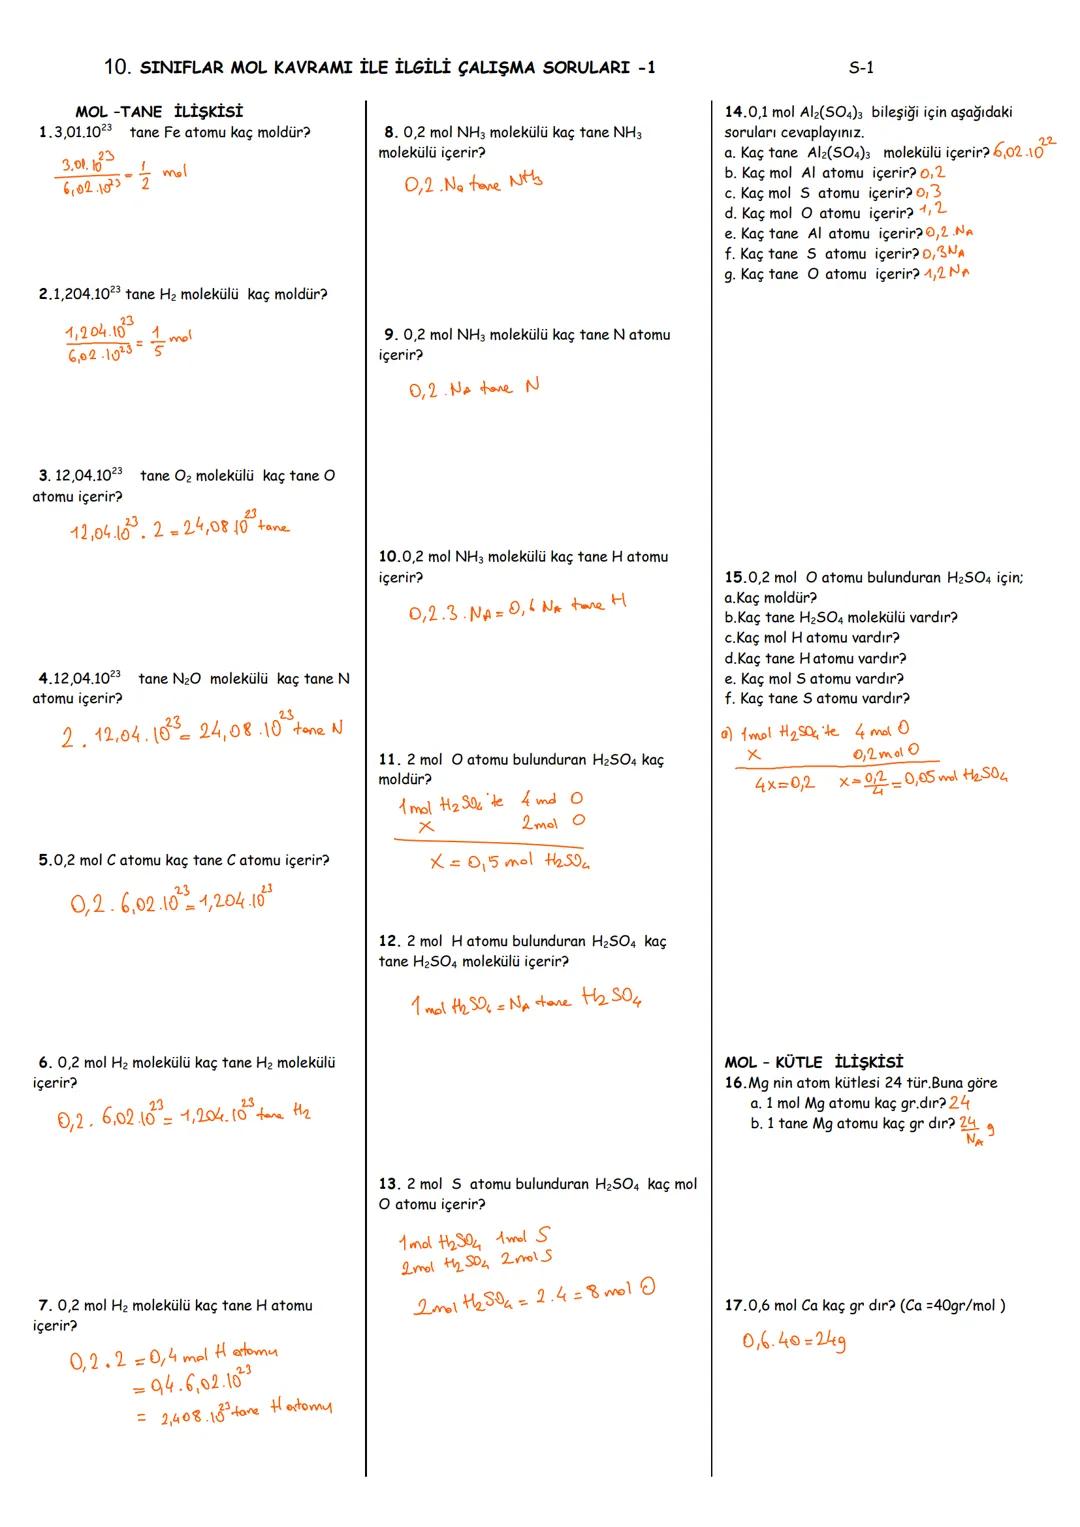 10. SINIFLAR MOL KAVRAMI İLE İLGİLİ ÇALIŞMA SORULARI -1
S-1
MOL -TANE İLİŞKİSİ
1.3,01.10²³ tane Fe atomu kaç moldür?
3,01.10²³ / 6,02.10²³ = 1/2 mol
2.1,204.10²³ tane H₂ molekülü kaç moldür?
1,204.10²³ / 6,02.10²³ = 1/5 mol
3. 12,04.10²³ tane O₂ molekülü kaç tane O
atomu içerir?
12,04.10²³ . 2 = 24,08.10²³ tane
4.12,04.10²³ tane N₂O molekülü kaç tane N
atomu içerir?
2 . 12,04.10²³ = 24,08.10²³ tane N
5.0,2 mol C atomu kaç tane C atomu içerir?
0,2 . 6,02.10²³ = 1,204.10²³
6. 0,2 mol H₂ molekülü kaç tane H₂ molekülü
içerir?
0,2 . 6,02.10²³ = 1,204.10²³ tane H₂
7. 0,2 mol H₂ molekülü kaç tane H atomu
içerir?
0,2 . 2 = 0,4 mol H atomu
= 0,4 . 6,02.10²³
= 2,408.10²³ tane H atomu
8. 0,2 mol NH₃ molekülü kaç tane NH₃
molekülü içerir?
0,2 . Na tane NH₃
9. 0,2 mol NH₃ molekülü kaç tane N atomu
içerir?
0,2 . NA tane N
10.0,2 mol NH₃ molekülü kaç tane H atomu
içerir?
0,2 . 3 . NA = 0,6 NA tane H
11. 2 mol O atomu bulunduran H₂SO₄ kaç
moldür?
1 mol H₂SO₄'te 4 mol O
x 2 mol O
x = 0,5 mol H₂SO₄
12. 2 mol H atomu bulunduran H₂SO₄ kaç
tane H₂SO₄ molekülü içerir?
1 mol H₂SO₄ = NA tane H₂SO₄
13. 2 mol S atomu bulunduran H₂SO₄ kaç mol
O atomu içerir?
1 mol H₂SO₄ 1 mol S
2 mol H₂SO₄ 2 mol S
2 mol H₂SO₄ = 2.4 = 8 mol O
14.0,1 mol Al₂(SO₄)₃ bileşiği için aşağıdaki
soruları cevaplayınız.
a. Kaç tane Al₂(SO₄)₃ molekülü içerir? 6,02.10²²
b. Kaç mol Al atomu içerir? 0,2
c. Kaç mol S atomu içerir? 0,3
d. Kaç mol O atomu içerir? 1,2
e. Kaç tane Al atomu içerir? 0,2.NA
f. Kaç tane S atomu içerir? 0,3NA
g. Kaç tane O atomu içerir? 1,2 NA
15.0,2 mol O atomu bulunduran H₂SO₄ için;
a.Kaç moldür?
b.Kaç tane H₂SO₄ molekülü vardır?
c.Kaç mol H atomu vardır?
d.Kaç tane H atomu vardır?
e. Kaç mol S atomu vardır?
f. Kaç tane S atomu vardır?
a) 1 mol H₂SO₄'te 4 mol O
x 0,2 mol O
4x=0,2 x = 0,2/4 = 0,05 mol H₂SO₄
MOL - KÜTLE İLİŞKİSİ
16.Mg nin atom kütlesi 24 tür.Buna göre
a. 1 mol Mg atomu kaç gr.dır? 24
b. 1 tane Mg atomu kaç gr dır? 24/NA g
17.0,6 mol Ca kaç gr dır? (Ca =40gr/mol )
0,6 . 40 = 24g